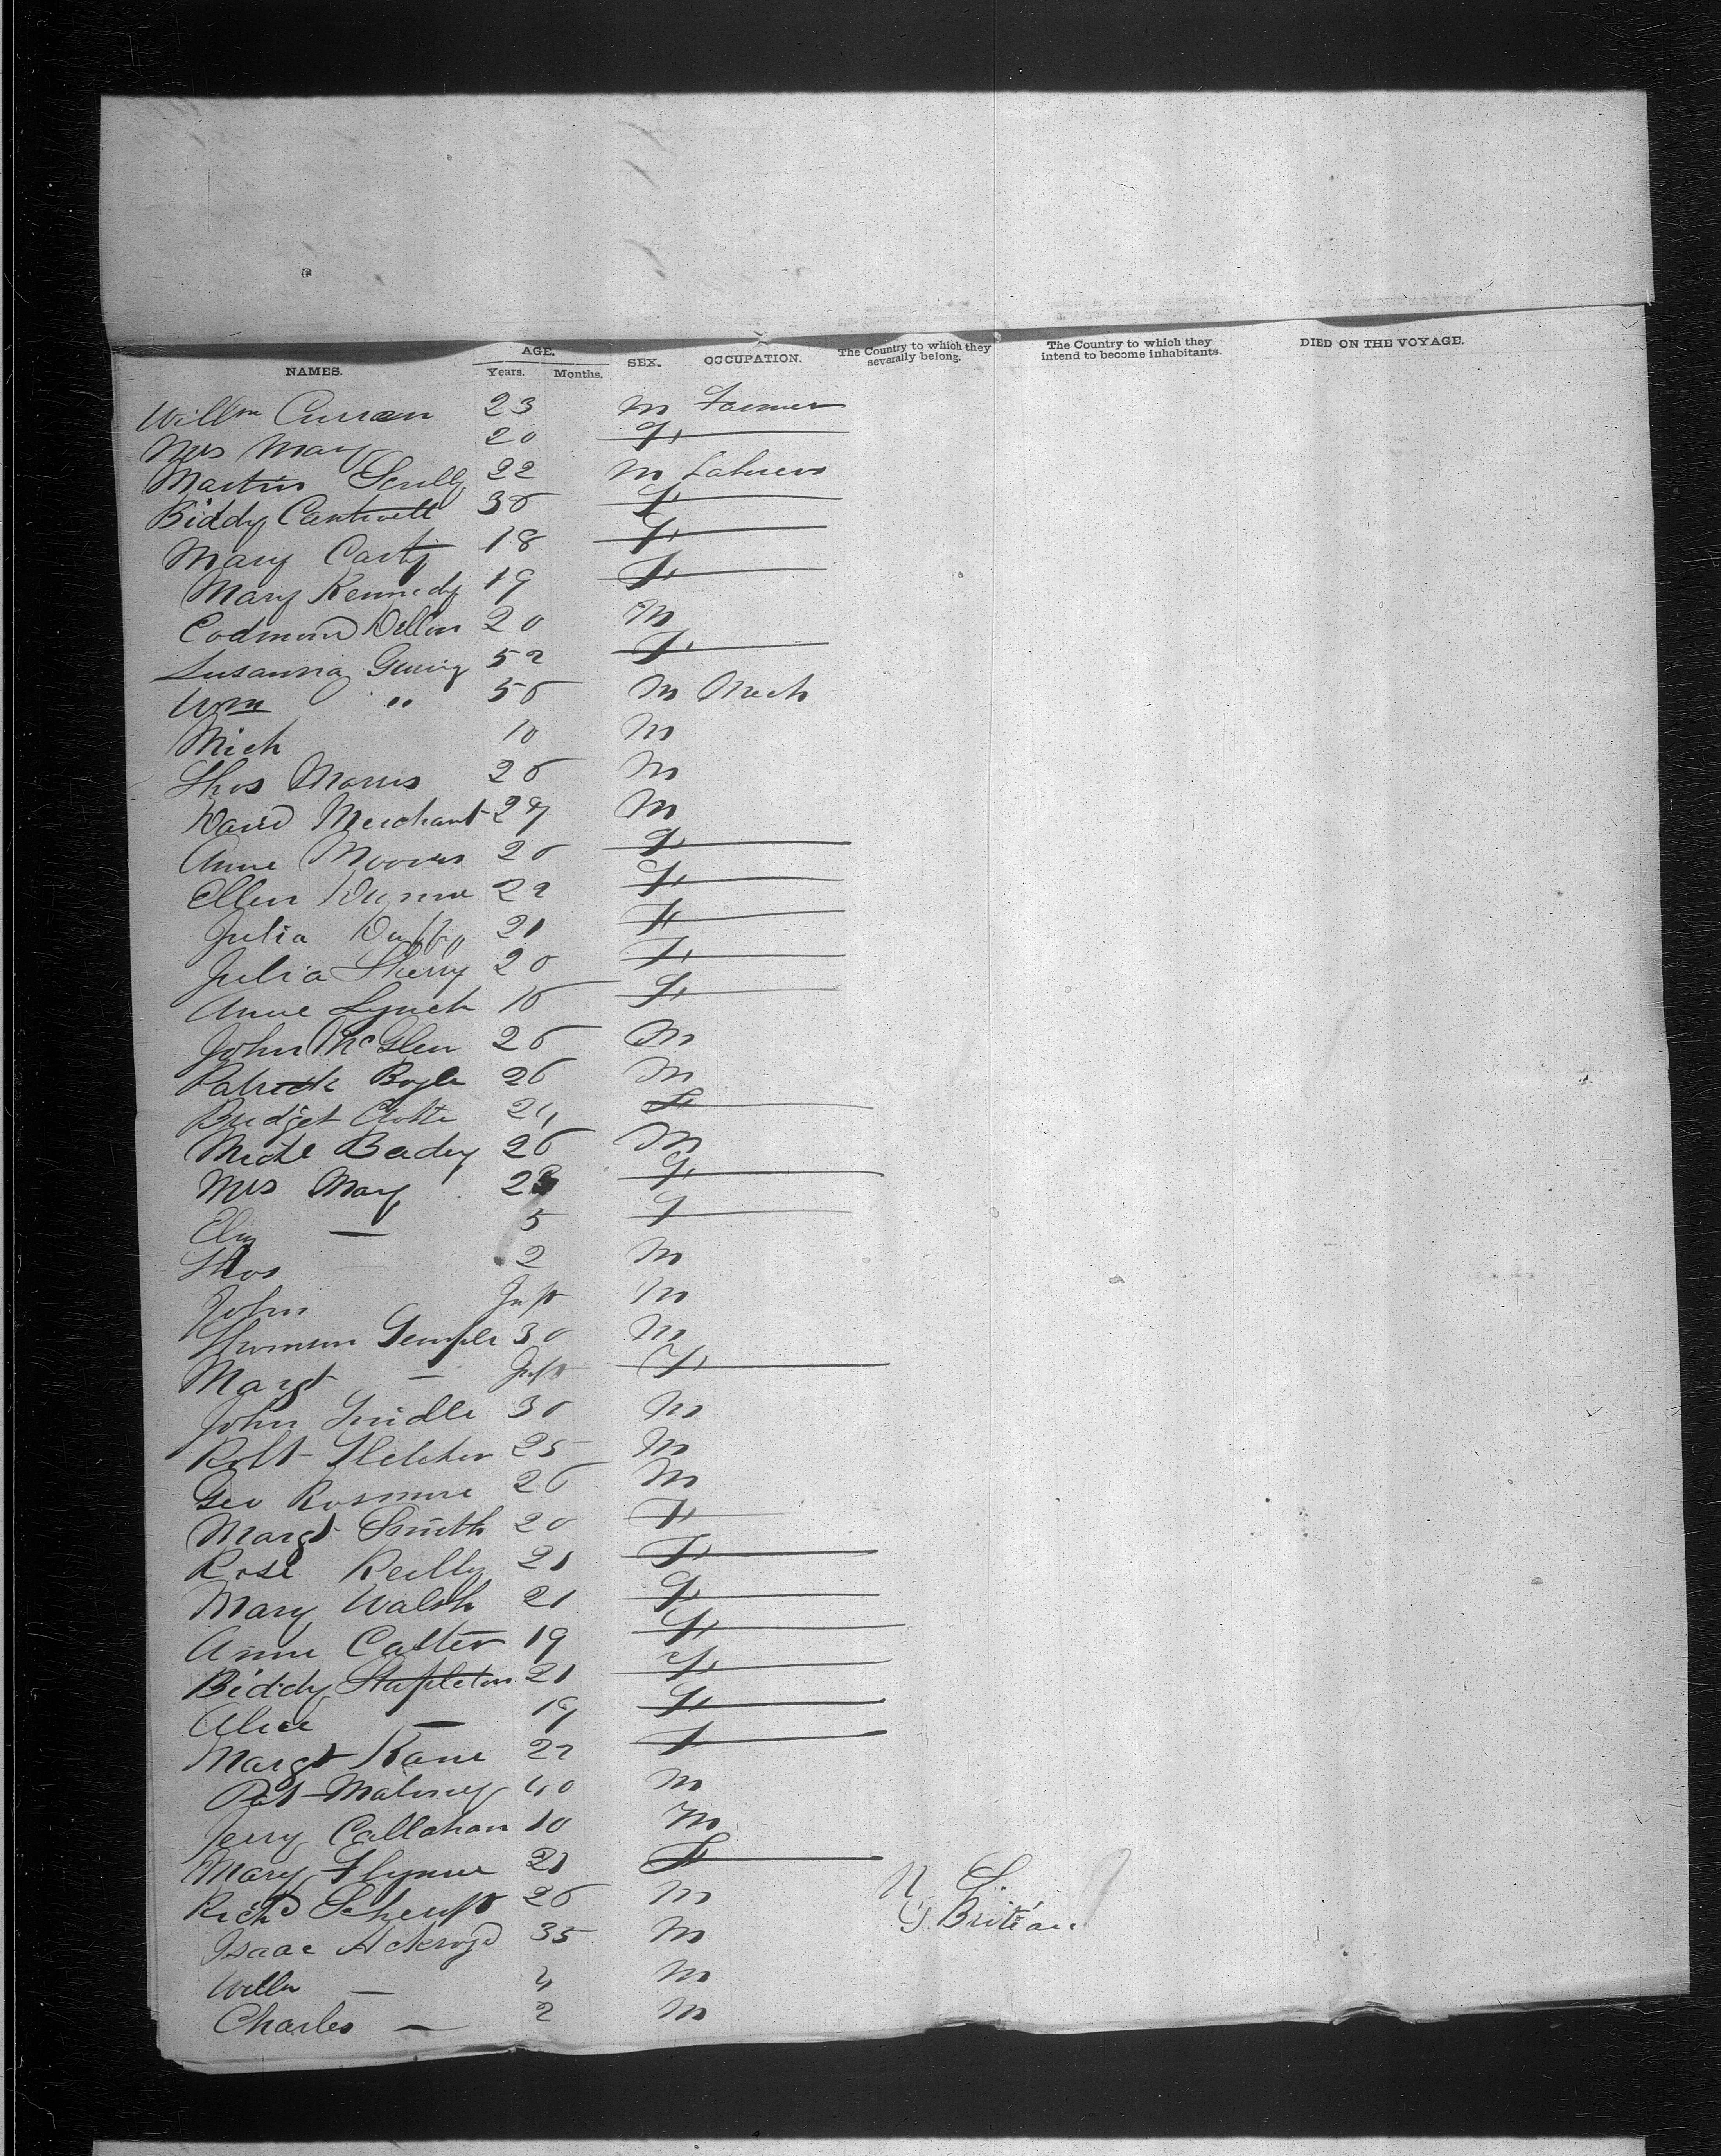 NAMES. AGE. Years. Months. SEX. OCCUPATION. The Country to which they severally belong. The Country to which they intend to become inhabitants. DIED ON THE VOYAGE.
Willm Curran 23 M Farmer
Mrs Mary 20 F
Martin Scully 22 M Laborer
Biddy Cantwell 30 F
Mary Carty 18 F
Mary Kennedy 19 F
Dillon 20 M
Susanna 52 F
Wm " 50 M Mech
Mich 10 M
Thos Morris 20 M
David Merchant 29 M
Anne 20 F
Ellen 22 F
Julia Duffy 21 F
Julia Sherry 20 F
Anne Lynch 16 F
John McGlen 26 M
Patrick Boyle 26 M
Bridget 24 F
Michl 26 M
Mrs Mary F
Eliz — 5 F
Thos 2 M
John Inft M
Temple 30 M
Margt — Inft F
John 30 M
Robt Fletcher 25 M
Geo 26 M
Margt Smith 20 F
Rose Reilly 21 F
Mary Walsh 21 F
Anne 19 F
Biddy Stapleton 21 F
Alice — 19 F
Margt Kane 22 F
Pat Maloney 40 M
Jerry Callahan 10 M
Mary Flynne 21 F
Richd 26 M
Isaac Ackroyd 35 M G. Britain
Willm — 4 M
Charles — 2 M